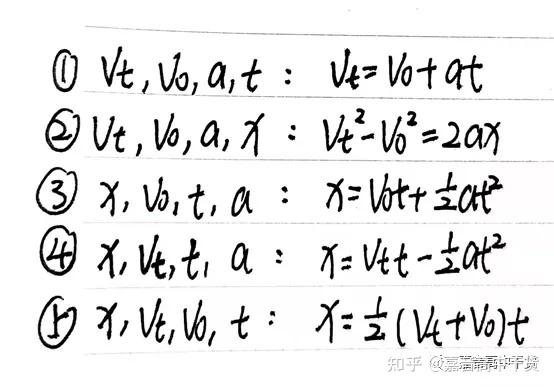 ① Vt, V0, a, t : Vt=V0+at
② Vt, V0, a, x : Vt²-V0²=2ax
③ x, V0, t, a : x=V0t+½at²
④ x, Vt, t, a : x=Vtt-½at²
⑤ x, Vt, V0, t : x=½(Vt+V0)t
知乎